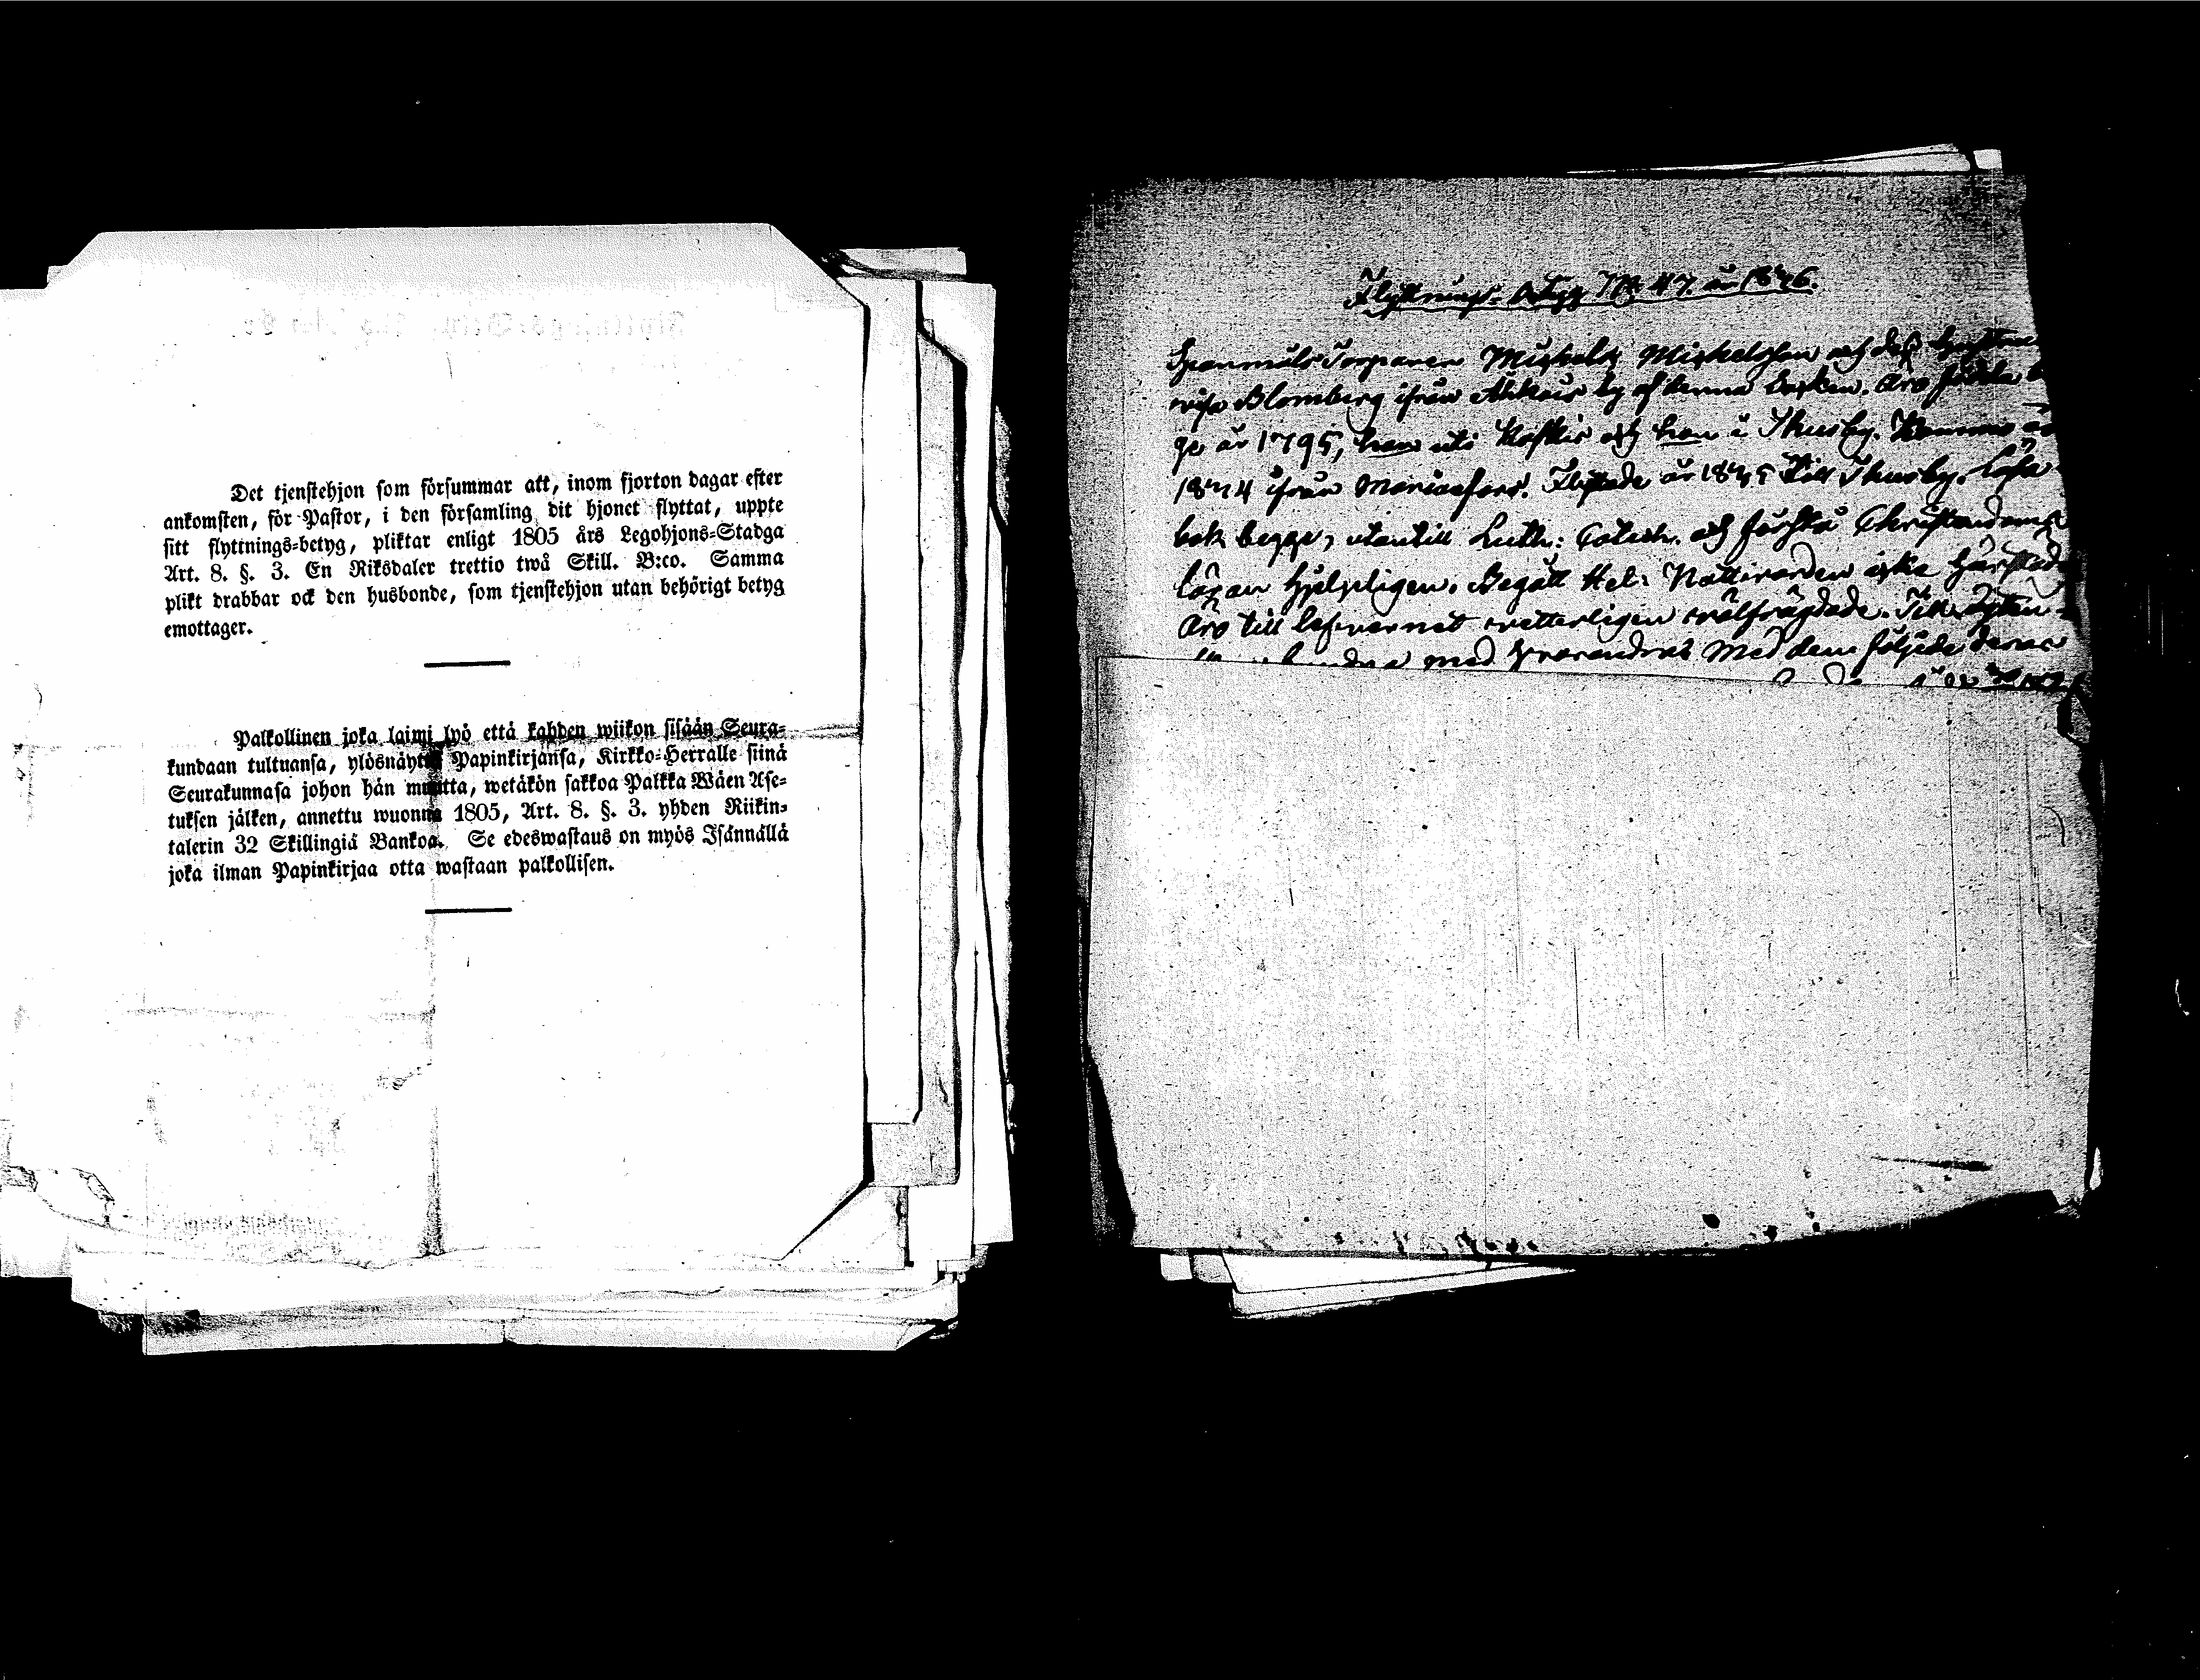 Det tjenstehjon som försummar att, inom fjorton dagar efter
ankomsten, för Pastor, i den församling dit hjonet flyttat, uppte
sitt flyttnings-betyg, pliktar enligt 1805 års Legohjons-Stadga
Art. 8. §. 3. En Riksdaler trettio twå Skill. B:co. Samma
plikt drabbar ock den husbonde, som tjenstehjon utan behörigt betyg
emottager.
Palkollinen joka laimi lyö että kahden wiikon sisään Seura-
kundaan tultuansa, ylösnäyttä Papinkirjansa, Kirkko-Herralle siinä
Seurakunnasa johon hän muutta, wetäkön sakkoa Palkka Wäen Ase-
tuksen jälken, annettu wuonna 1805, Art. 8. §. 3. yhden Riikin-
talerin 32 Skillingiä Bankoa. Se edeswastaus on myös Isännällä
joka ilman Papinkirjaa otta wastaan palkollisen.
Flyttnings-Betyg No 47. år 1846.
Spanmåls Torparen Michels Michelsson och dess hustru
Blomberg ifrån by af denna Socken. Äro födda b
ge år 1795, han uti Koskis och hon i Thusby. Kommo år
1844 ifrån Mariaefors. Flyttade år 1845 till Thusby. Läsa
bok begge, utantill Luth: Catech. och förstå Christendoms
läran hjelpligen. Begått Hel: Nattvarden
Äro till lefvernet välfrägdade. Till
med hvarandra. Med dem följde deras